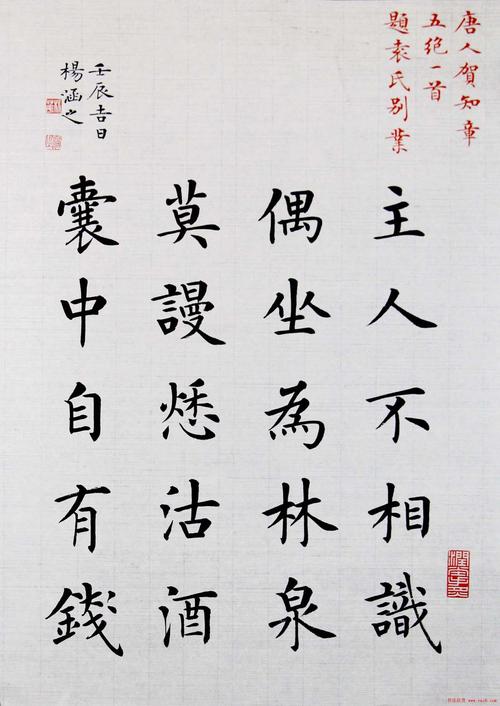 唐人賀知章
五絕一首
題袁氏別業
主人不相識
偶坐為林泉
莫謾愁沽酒
囊中自有錢
壬辰吉日
楊涵之
书法欣赏 www.yac8.com